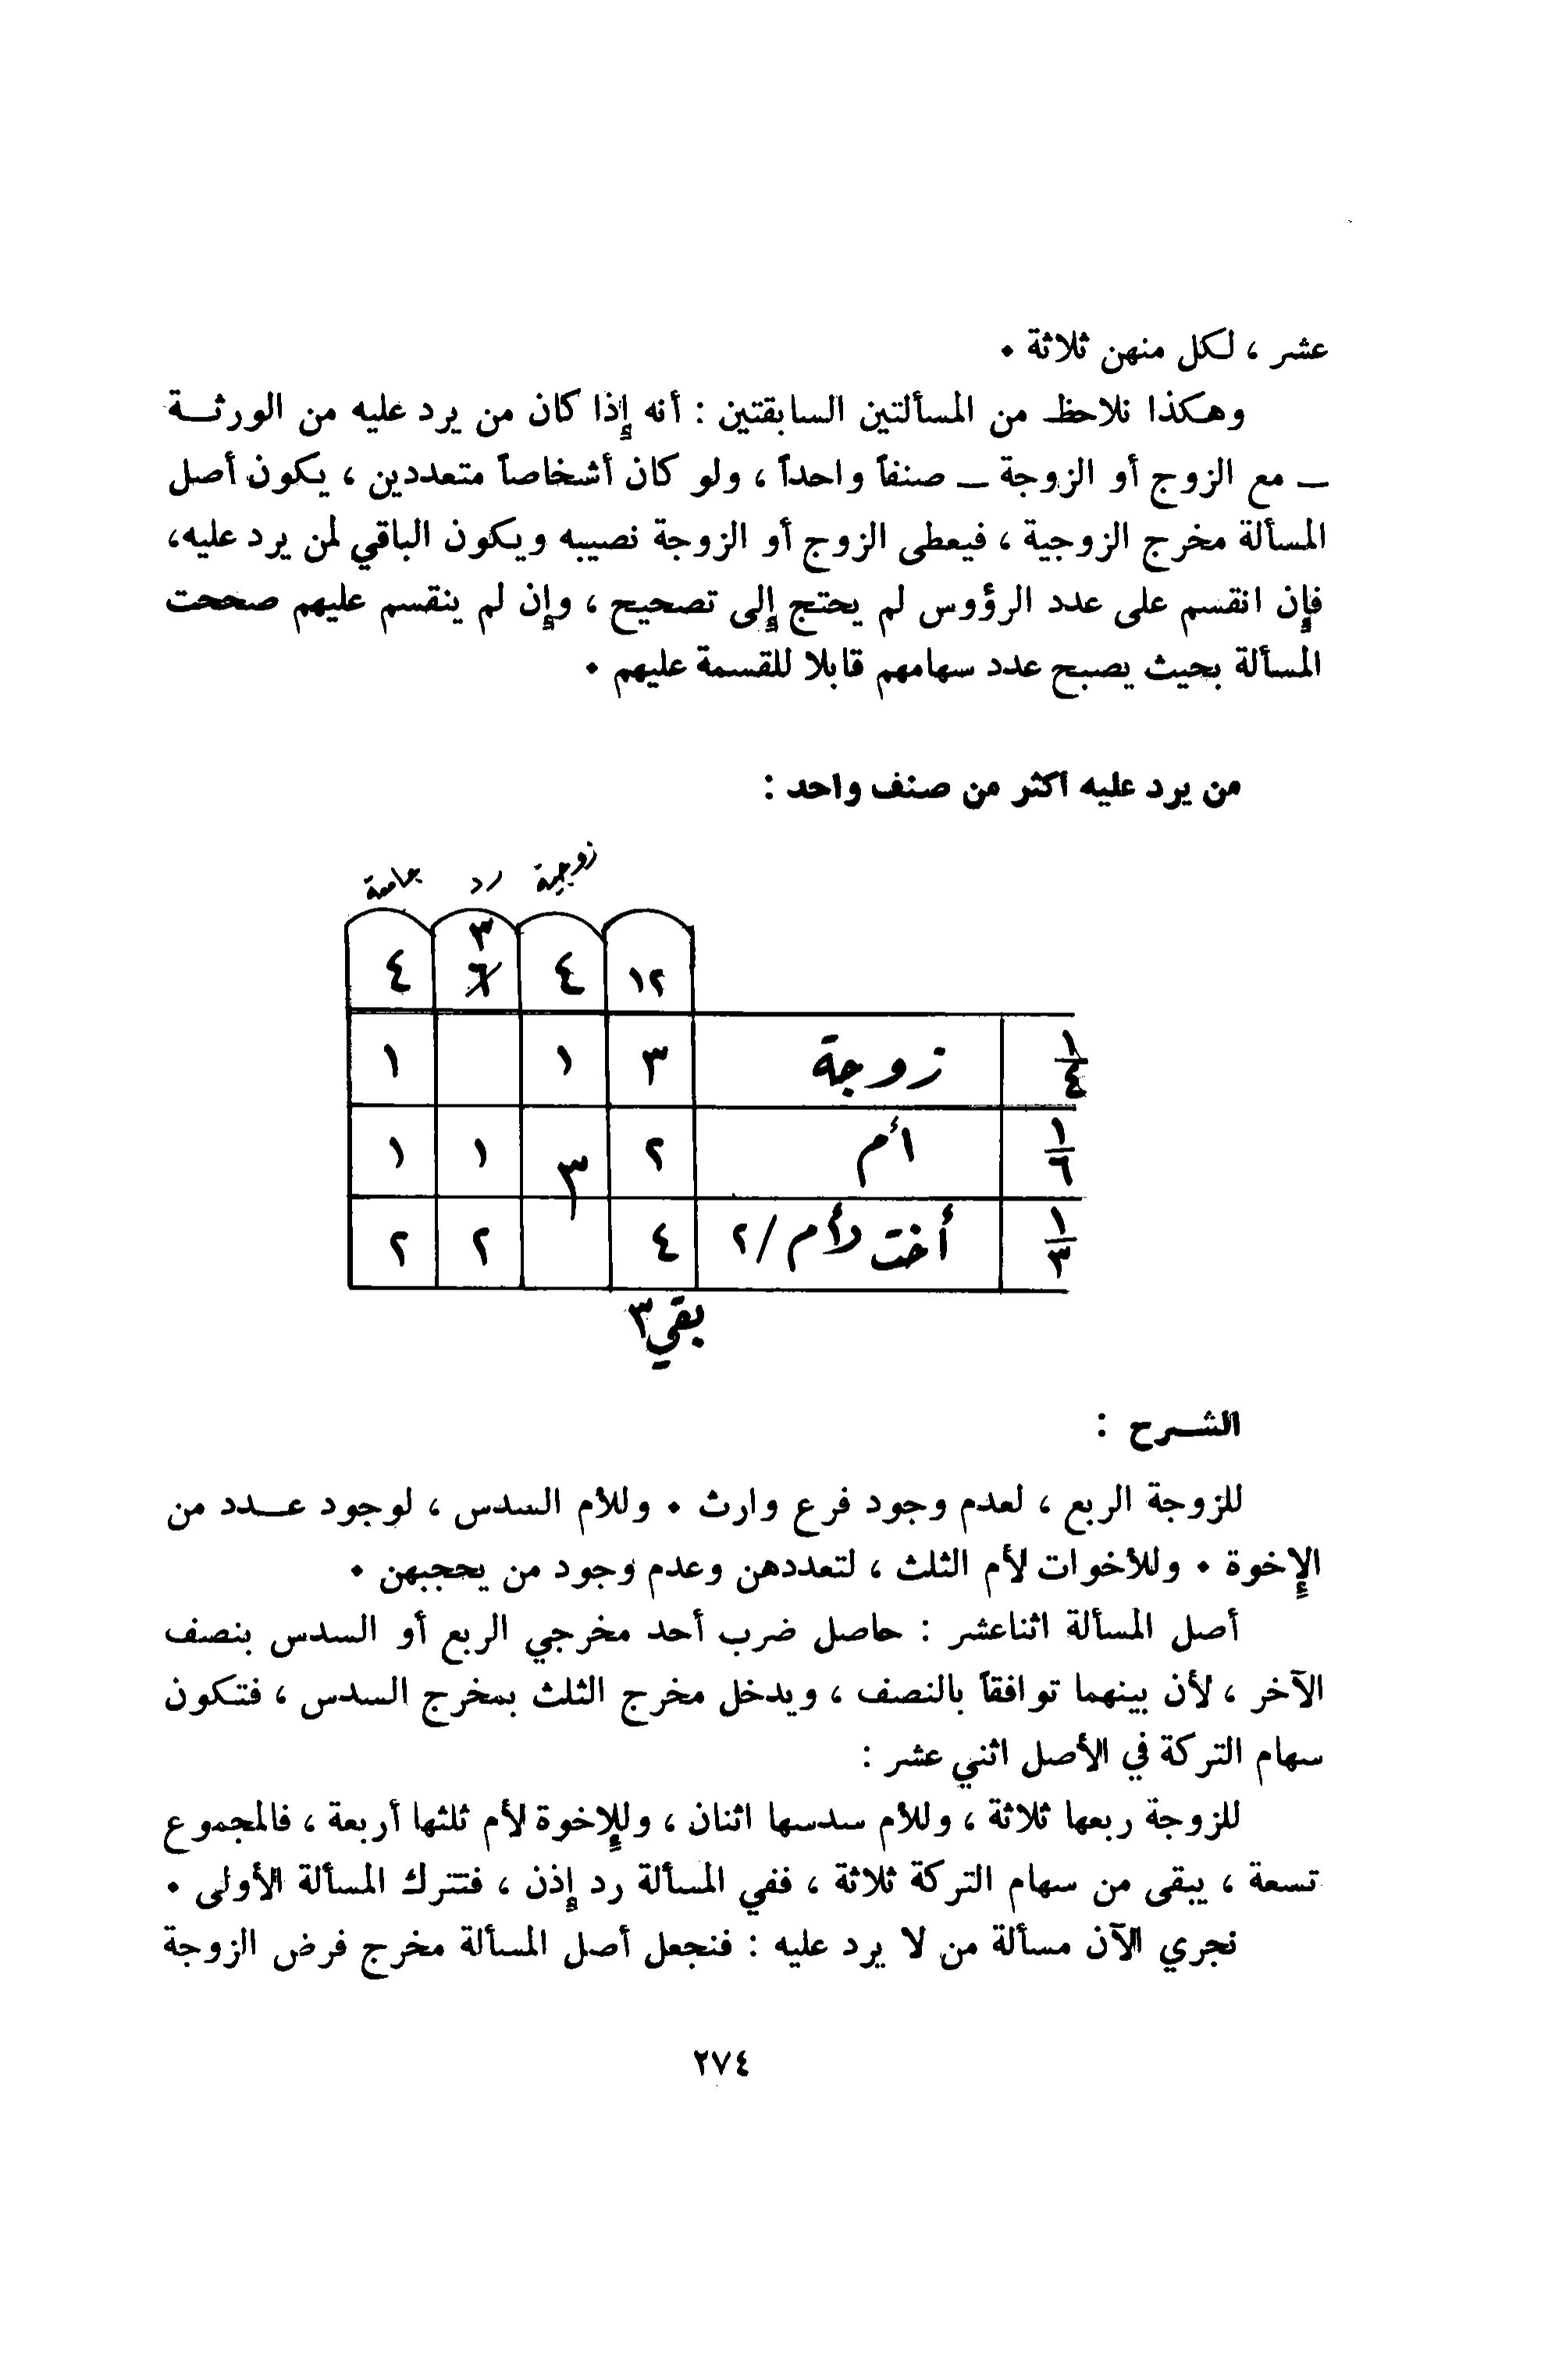 عشر ، لكل منهن ثلاثة ٠
وهكذا نلاحظ من المسألتين السابقتين : أنه إذا كان من يرد عليه من الورثـــة
ــ مع الزوج أو الزوجة ــ صنفاً واحداً ، ولو كان أشخاصاً متعددين ، يكون أصل
المسألة مخرج الزوجية ، فيعطى الزوج أو الزوجة نصيبه ويكون الباقي لمن يرد عليه،
فإن انقسم على عدد الرؤوس لم يحتج إلى تصحيح ، وإن لم ينقسم عليهم صححت
المسألة بحيث يصبح عدد سهامهم قابلا للقسمة عليهم ٠
من يرد عليه أكثر من صنف واحد :
زوجية رد جامعة
٣
١٢ ٤ ٦ ٤
١/٤ زوجة ٣ ١ ١
١/٦ أم ٢ ٣ ١ ١
١/٣ أخت لأم /٢ ٤ ٢ ٢
بقي ٣
الشـــرح :
للزوجة الربع ، لعدم وجود فرع وارث ٠ وللأم السدس ، لوجود عـــدد من
الإخوة ٠ وللأخوات لأم الثلث ، لتعددهن وعدم وجود من يحجبهن ٠
أصل المسألة اثناعشر : حاصل ضرب أحد مخرجي الربع أو السدس بنصف
الآخر ، لأن بينهما توافقاً بالنصف ، ويدخل مخرج الثلث بمخرج السدس ، فتكون
سهام التركة في الأصل اثني عشر :
للزوجة ربعها ثلاثة ، وللأم سدسها اثنان ، وللإخوة لأم ثلثها أربعة ، فالمجموع
تسعة ، يبقى من سهام التركة ثلاثة ، ففي المسألة رد إذن ، فتترك المسألة الأولى ٠
نجري الآن مسألة من لا يرد عليه : فنجعل أصل المسألة مخرج فرض الزوجة
٢٧٤